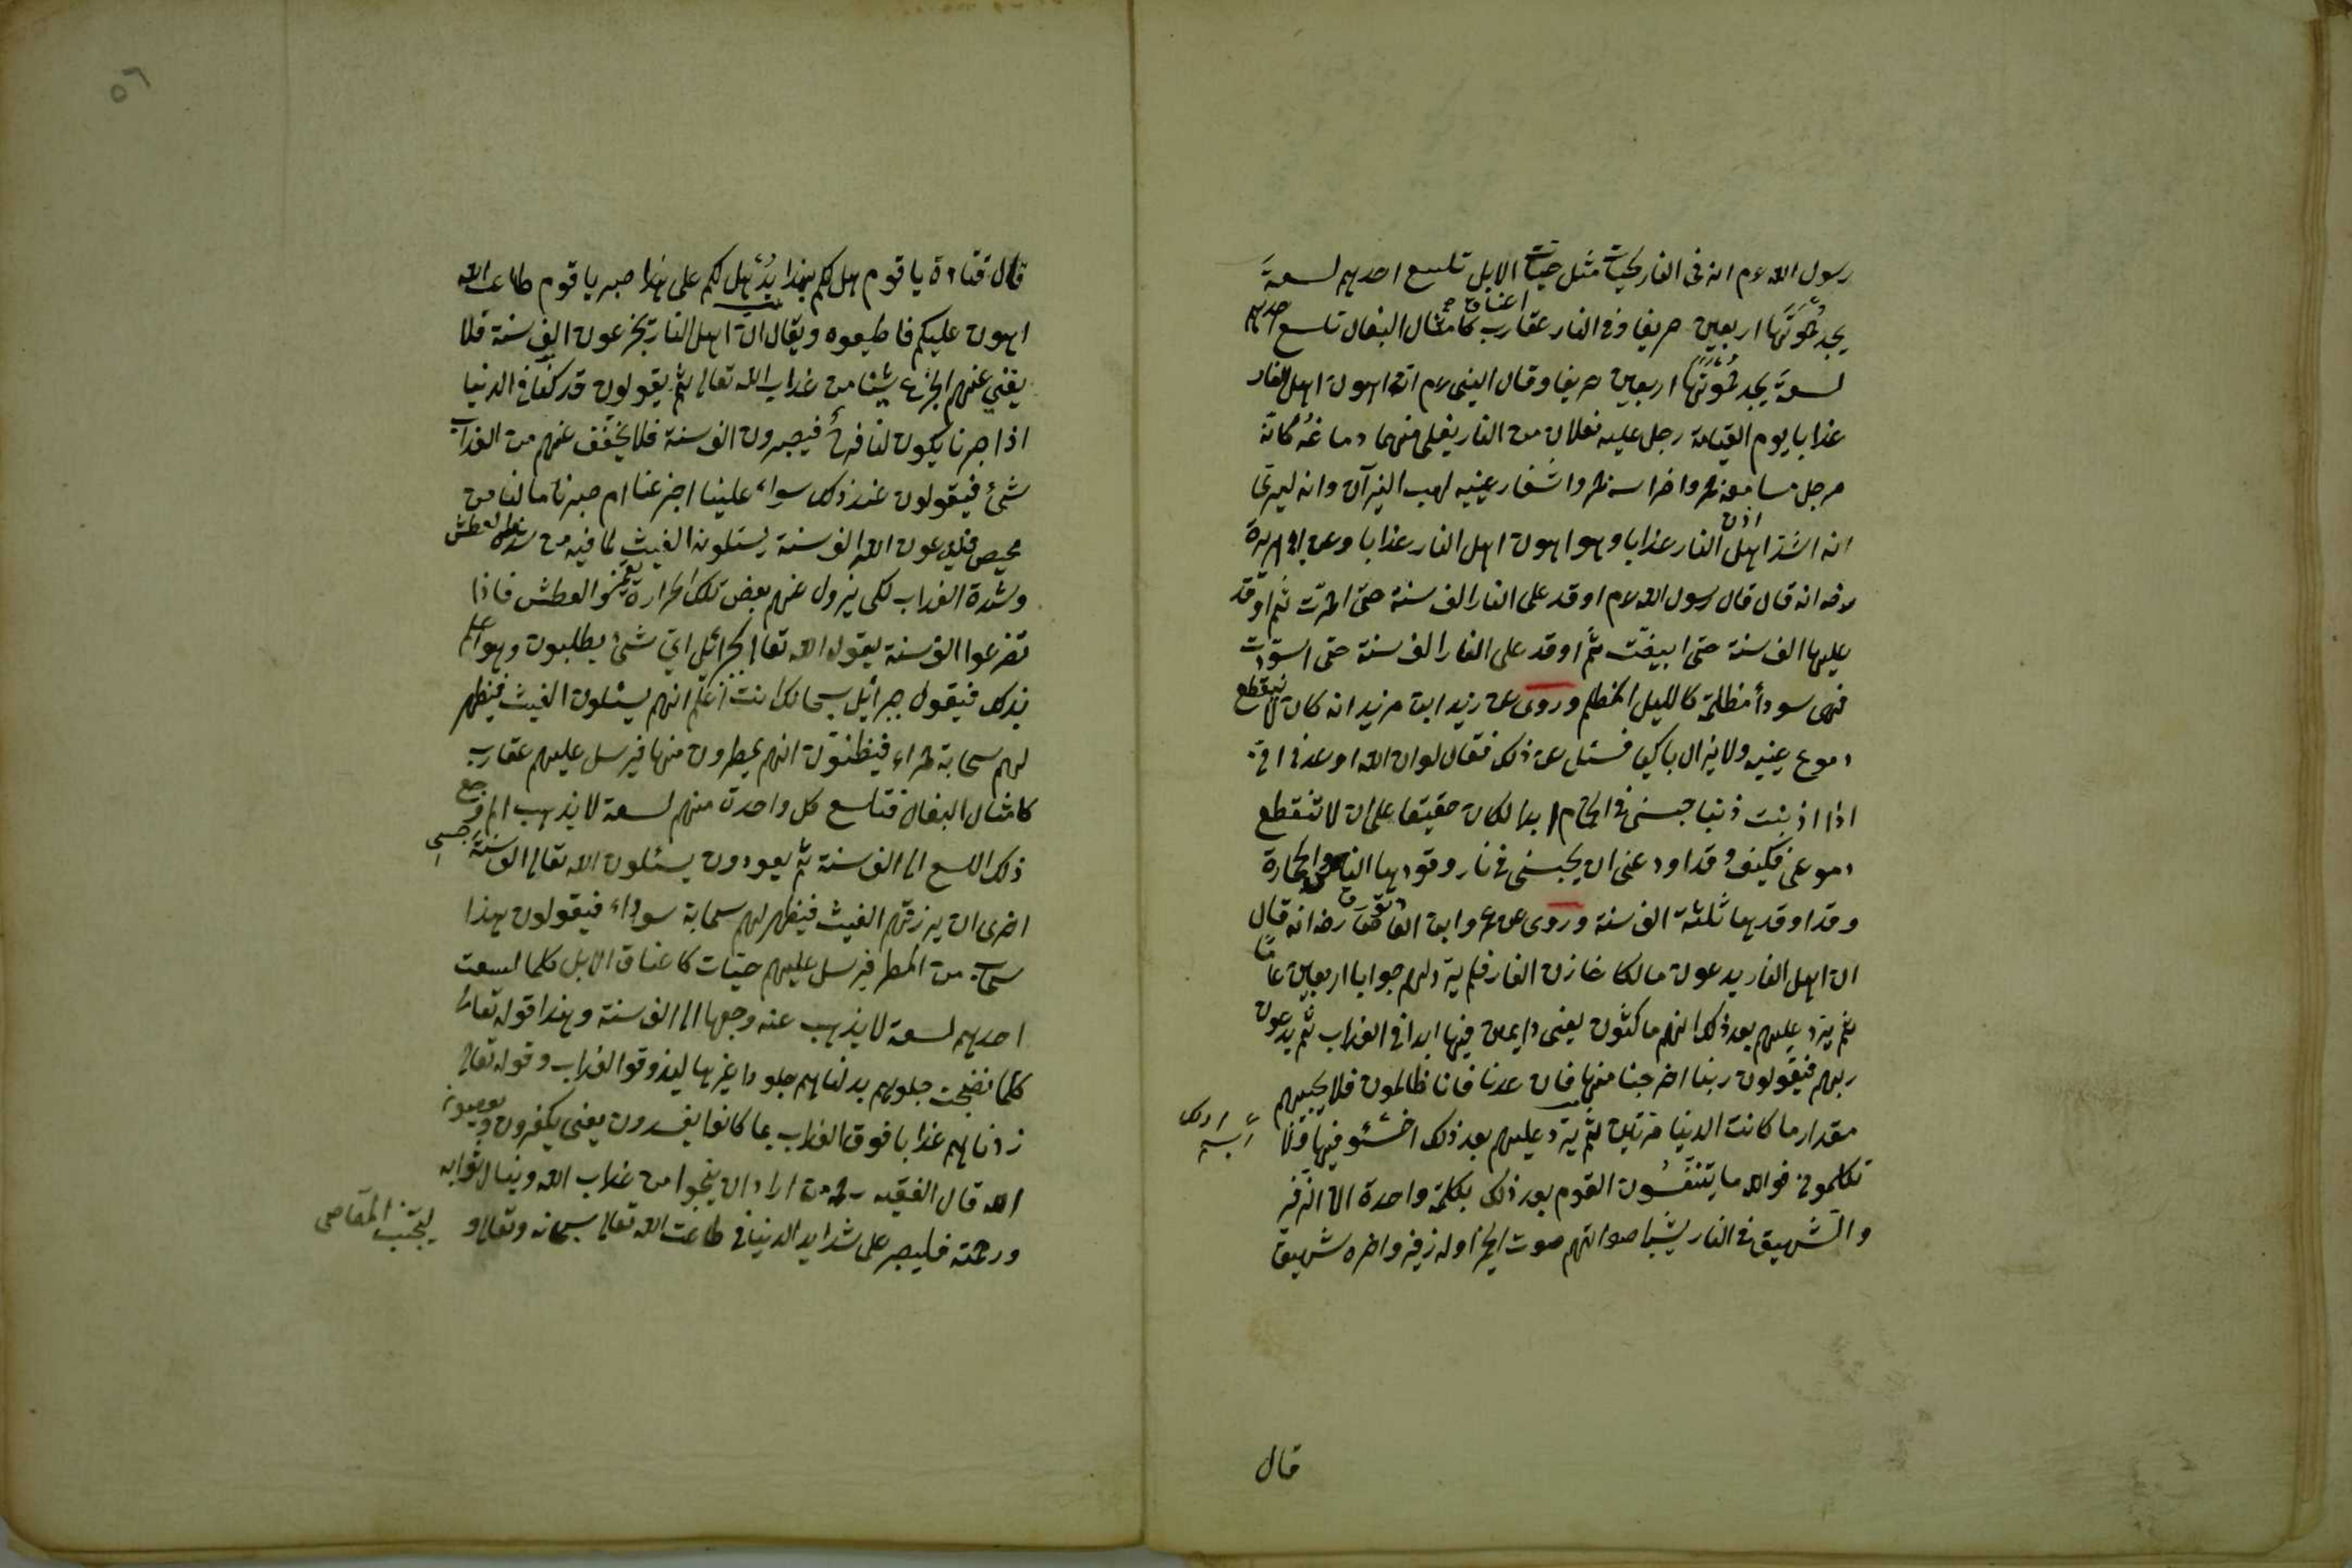 رسول الله عم ان فى النار لحيات مثل حيات الابل تلسع احدهم لسعة
يجد حموتها اربعين خريفا وفى النار عقارب كامثال البغال تلسع احدهم
لسعة يجد حموتها اربعين خريفا وقال النبى عم ان اهون اهل النار
عذابا يوم القيامة رجل عليه نعلان من النار يغلى منهما دماغه كانه
مرجل مسامعه جمر واضراسه جمر واشفار عينيه لهب النيران وانه ليرى
انه اشد اهل النار عذابا وهو اهون اهل النار عذابا وعن ابى هريرة
رضه انه قال قال رسول الله عم اوقد على النار الف سنة حتى احمرت ثم اوقد
عليها الف سنة حتى ابيضت ثم اوقد على النار الف سنة حتى اسودت
فهى سودا مظلمة كالليل المظلم وروى عن زيد ابن مرثد انه كان لا ينقطع
دموع عينيه ولا يزال باكيا فسئل عن ذلك فقال لو ان الله اوعدنى انى
اذا اذنبت ذنبا حبسنى فى الحمام ابدا لكان حقيقا على ان لا تنقطع
دموعى فكيف وقد اوعدنى ان يحبسنى فى نار وقودها الناس والحجارة
وقد اوقدها ثلثة الف سنة وروى عن عمرو ابن العاص رضه انه قال
ان اهل النار يدعون مالكا خازن النار فلم يرد لهم جوابا اربعين عاما
ثم يرد عليهم بعد ذلك انهم ماكثون يعنى دايمين فيها ابدا فى العذاب ثم يدعون
ربهم فيقولون ربنا اخرجنا منها فان عدنا فانا ظالمون فلا يجيبهم
مقدار ما كانت الدنيا مرتين ثم يرد عليهم بعد ذلك اخسئو فيها ولا
تكلمون فوالله ما يتنفسون القوم بعد ذلك بكلمة واحدة الا الزفير
والشهيق فى النار يشبه اصواتهم صوت الحمر اوله زفير واخره شهيق
قال
٥٦
قال قتادة يا قوم هل لكم بهذا يد هل لكم على هذا صبر يا قوم طاعت الله
اهون عليكم فاطيعوه ويقال ان اهل النار يجزعون الف سنة فلا
يغنى عنهم الجزع شيئا من عذاب الله تعالى ثم يقولون قد كنا فى الدنيا
اذا صبرنا يكون لنا فرج فيصبرون الف سنة فلا يخفف عنهم من العذاب
شئ فيقولون عند ذلك سواء علينا اجزعنا ام صبرنا ما لنا من
محيص فيدعون الله الف سنة يسئلون الغيث لما فيه من شدة العطش
وشدة العذاب لكى يزول عنهم بعض تلك الحرارة والعطش فاذا
تضرعوا الف سنة يقول الله تعالى لجبرائل اى شئ يطلبون وهو اعلم
بذلك فيقول جبرائيل سبحانك انت اعلم انهم يسئلون الغيث فيظهر
لهم سحابة حمراء فيظنون انهم يمطرون منها فيرسل عليهم عقارب
كامثال البغال فتلسع كل واحدة منهم لسعة لا يذهب الم وجع
ذلك اللسع الى الف سنة ثم يعودون يسئلون الله تعالى الف سنة
اخرى ان يرزقهم الغيث فيظهر لهم سحابة سوداء فيقولون هذا
سحاب من المطر فيرسل عليهم حيات كاعناق الابل كلما لسعت
احدهم لسعة لا يذهب عنه وجعها الى الف سنة وهذا قوله تعالى
كلما نضجت جلودهم بدلناهم جلودا غيرها ليذوقوا العذاب وقوله تعالى
زدناهم عذابا فوق العذاب بما كانوا يفسدون يعنى يكفرون ويعصون
الله قال الفقيه رحمه من اراد ان ينجوا من عذاب الله وينال ثوابه
ورحمته فليصبر على شدايد الدنيا فى طاعت الله تعالى سبحانه وتعالى و
ليجتنب المعاصى